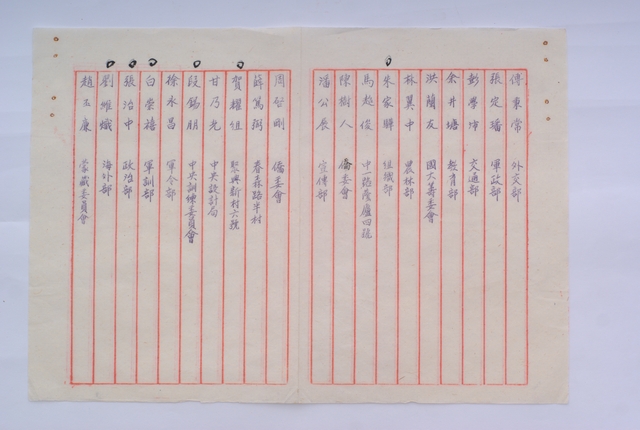 傅秉常 外交部
張定璠 軍政部
彭學沛 交通部
余井塘 教育部
洪蘭友 國大籌委會
林翼中 農林部
朱家驊 組織部
馬超俊 中一路 廬四號
陳樹人 僑委會
潘公展 宣傳部
周啓剛 僑委會
薛篤弼 春森路半村
賀耀組 聚興新村六號
甘乃光 中央設計局
段錫朋 中央訓練委員會
徐永昌 軍令部
白崇禧 軍訓部
張治中 政治部
劉維熾 海外部
趙丕廉 蒙藏委員會